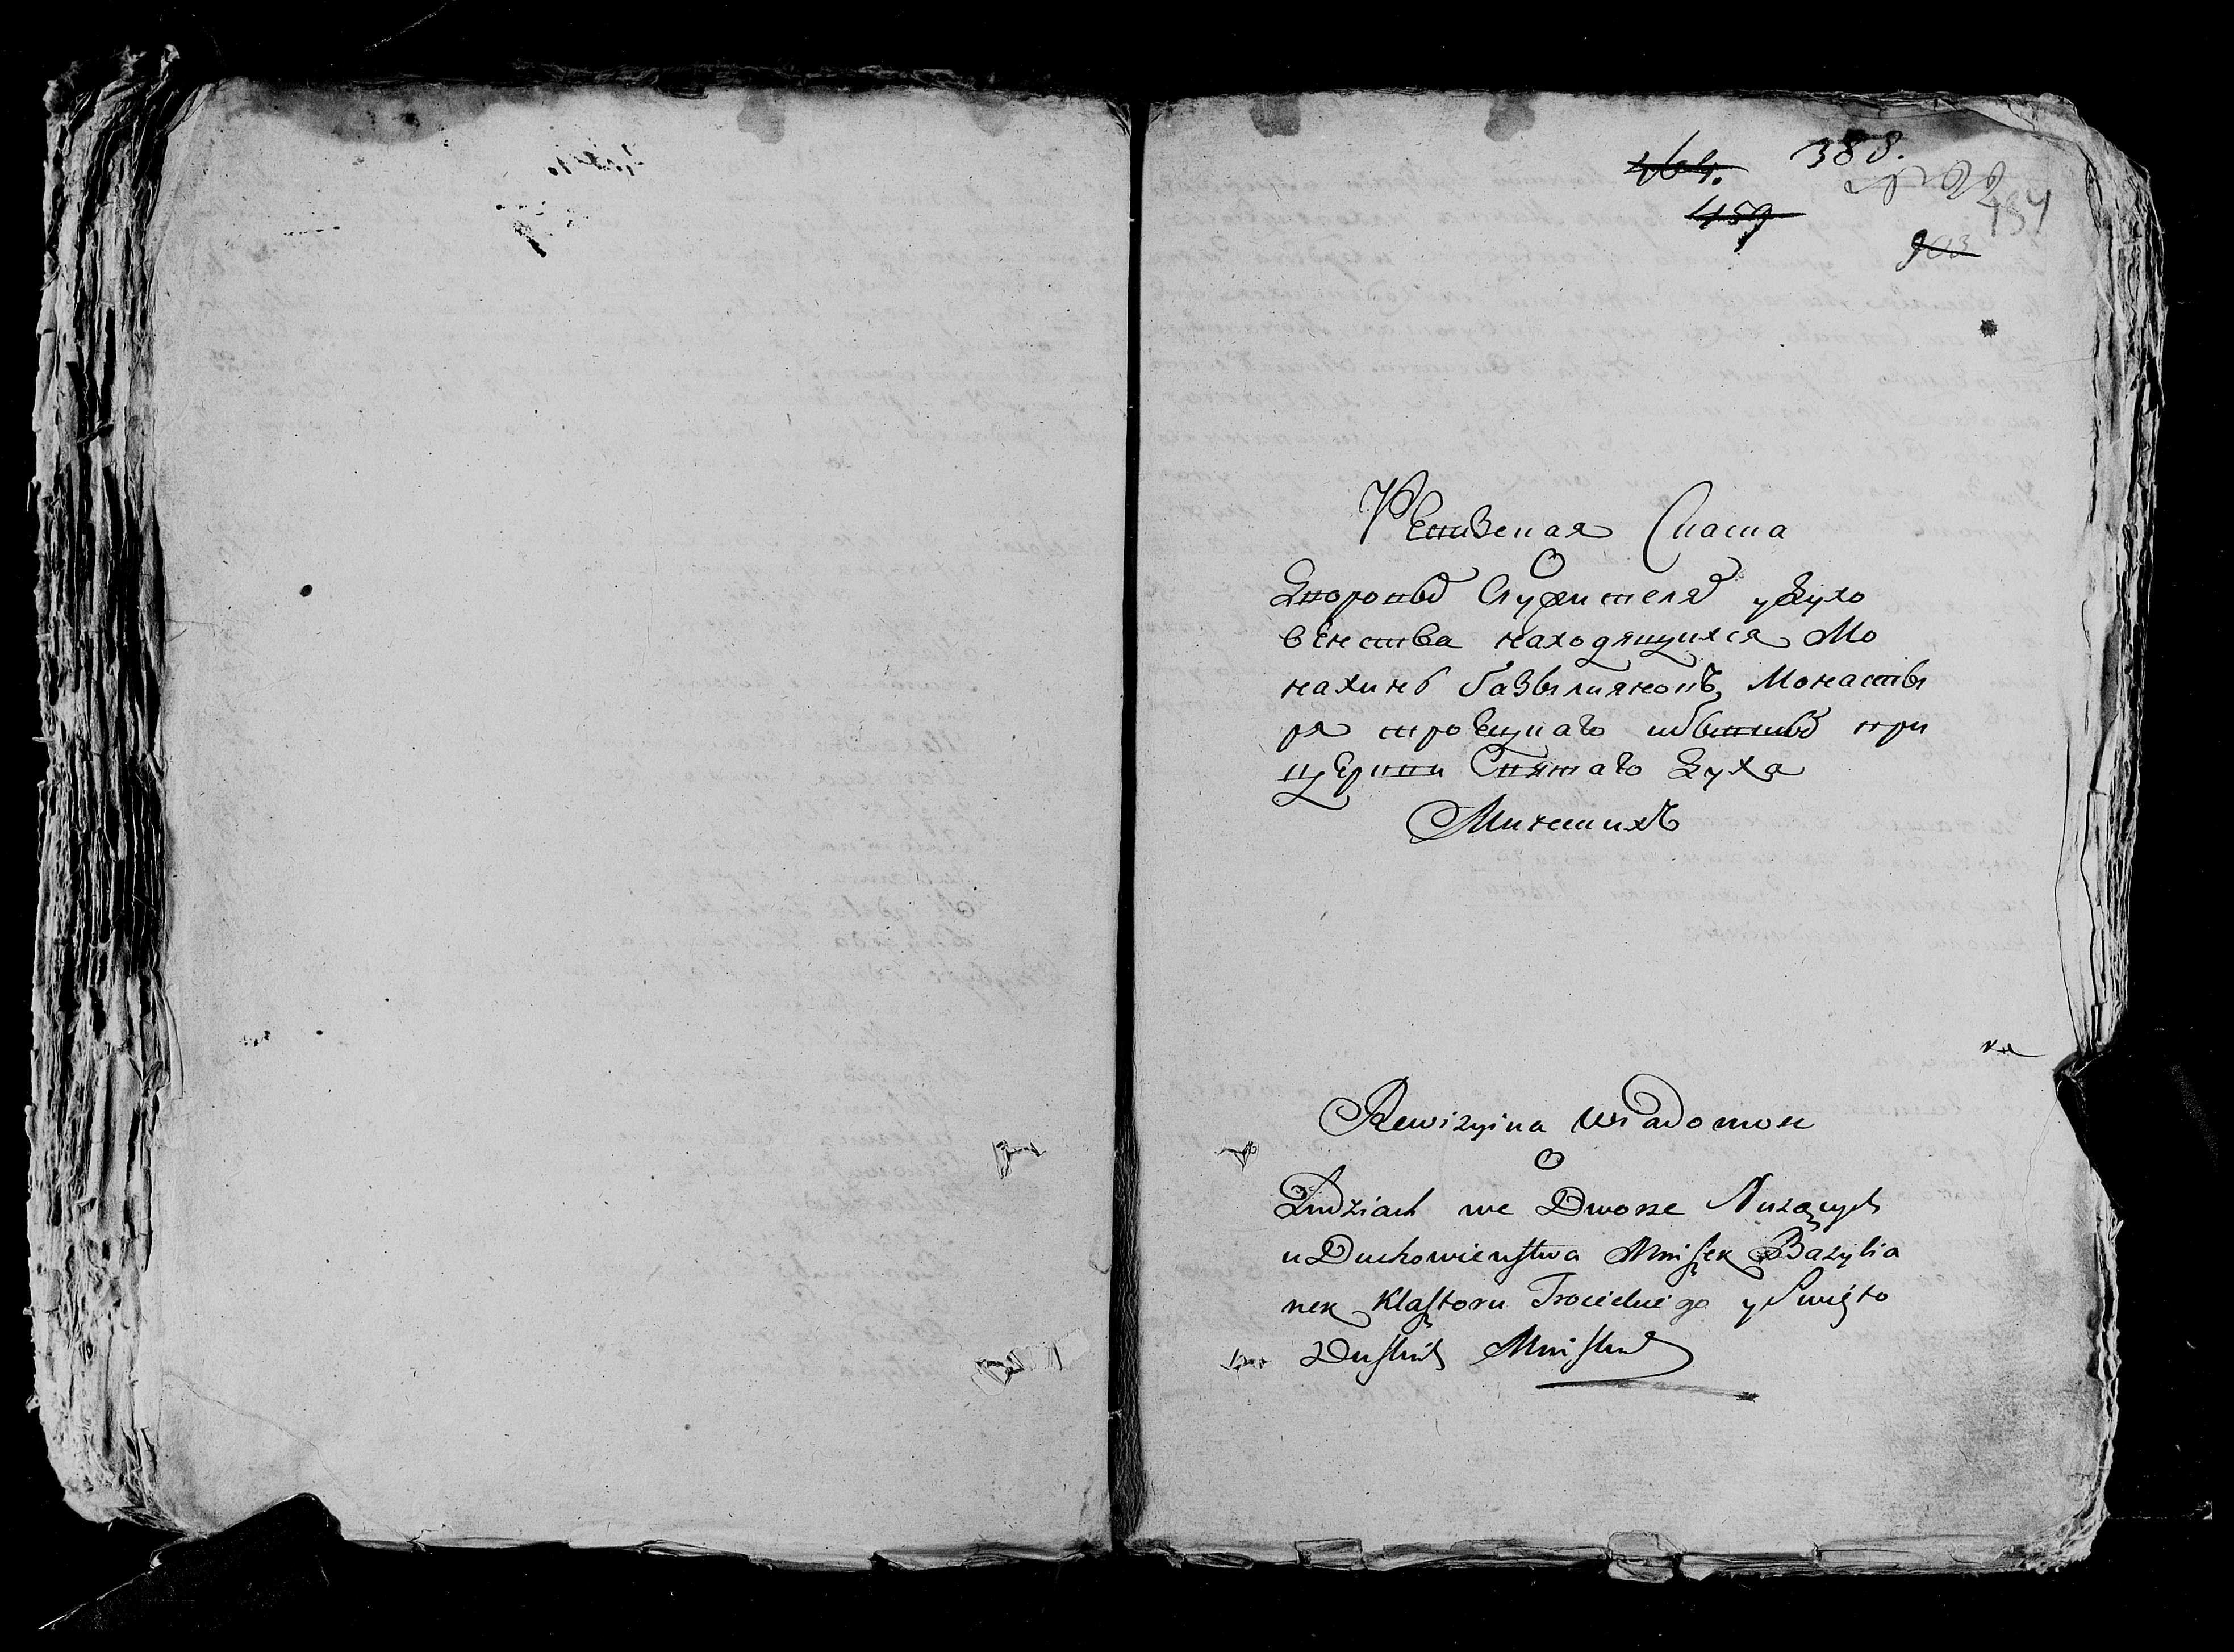 464.
388.
459
434
903
Ревизская Скаска
О
Дворовыхъ Служителяхъ у Духо
венства находящихся Мо
нахинъ базылиянокъ Монасты
ря троецкаго
при
церкви Святаго Духа
Минскихъ
Rewizyina Wiadomosc
O
Ludziach we Dworze Służących
u Duchowieństwa Mniszek Bazylia
nek Klasztoru Troieckiego y Święto
Duskich Minskich